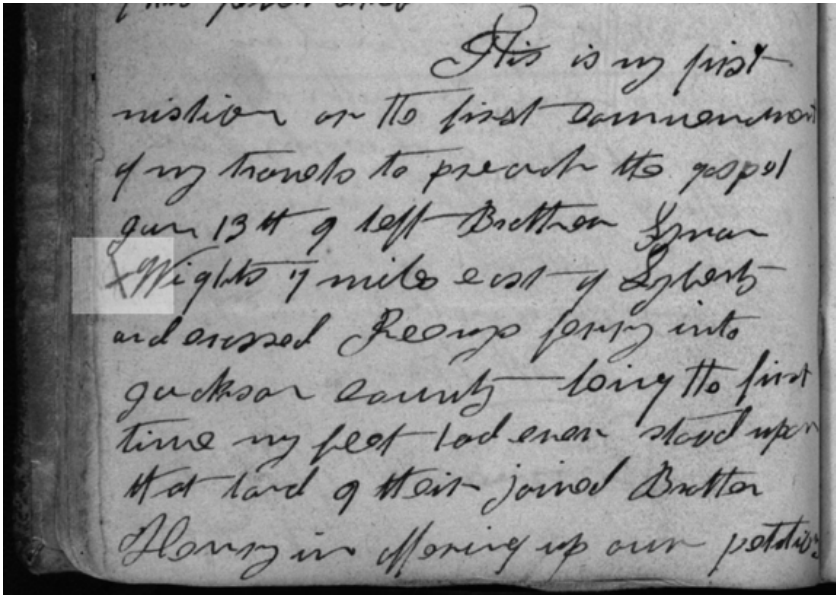 This is my first
mission or the first commencment
of my travels to preach the gospel
Jan 13th I left Brother Lyman
X Wights 7 miles east of Lyberty
and crossed Reeays ferry into
Jackson County being the first
time my feet had ever stood upon
that land I their joined Brother
Henry in offering up our petitions